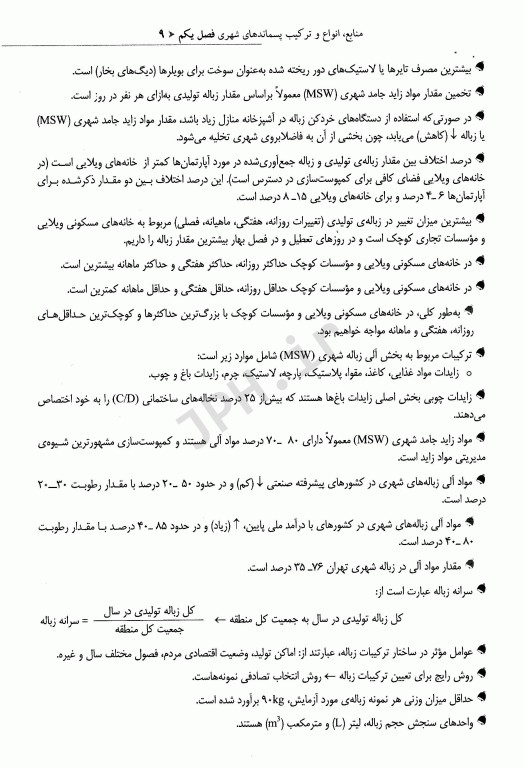 منابع، انواع و ترکیب پسماندهای شهری فصل یکم ≻ ۹
بیشترین مصرف تایرها یا لاستیک‌های دور ریخته شده به‌عنوان سوخت برای بویلرها (دیگ‌های بخار) است.
تخمین مقدار مواد زاید جامد شهری (MSW) معمولاً براساس مقدار زباله تولیدی به‌ازای هر نفر در روز است.
در صورتی‌که استفاده از دستگاه‌های خردکن زباله در آشپزخانه منازل زیاد باشد، مقدار مواد زاید جامد شهری (MSW)
یا زباله ↓ (کاهش) می‌یابد، چون بخشی از آن به فاضلابروی شهری تخلیه می‌شود.
درصد اختلاف بین مقدار زباله‌ی تولیدی و زباله جمع‌آوری‌شده در مورد آپارتمان‌ها کمتر از خانه‌های ویلایی است (در
خانه‌های ویلایی فضای کافی برای کمپوست‌سازی در دسترس است). این درصد اختلاف بین دو مقدار ذکرشده برای
آپارتمان‌ها ۶ـ۴ درصد و برای خانه‌های ویلایی ۱۵ـ۸ درصد است.
بیشترین میزان تغییر در زباله‌ی تولیدی (تغییرات روزانه، هفتگی، ماهیانه، فصلی) مربوط به خانه‌های مسکونی ویلایی
و مؤسسات تجاری کوچک است و در روزهای تعطیل و در فصل بهار بیشترین مقدار زباله را داریم.
در خانه‌های مسکونی ویلایی و مؤسسات کوچک حداکثر روزانه، حداکثر هفتگی و حداکثر ماهانه بیشترین است.
در خانه‌های مسکونی ویلایی و مؤسسات کوچک حداقل روزانه، حداقل هفتگی و حداقل ماهانه کمترین است.
به‌طور کلی، در خانه‌های مسکونی ویلایی و مؤسسات کوچک با بزرگ‌ترین حداکثرها و کوچک‌ترین حداقل‌های
روزانه، هفتگی و ماهانه مواجه خواهیم بود.
ترکیبات مربوط به بخش آلی زباله شهری (MSW) شامل موارد زیر است:
○ زایدات مواد غذایی، کاغذ، مقوا، پلاستیک، پارچه، لاستیک، چرم، زایدات باغ و چوب.
زایدات چوبی بخش اصلی زایدات باغ‌ها هستند که بیش از ۲۵ درصد نخاله‌های ساختمانی (C/D) را به خود اختصاص
می‌دهند.
مواد زاید جامد شهری (MSW) معمولاً دارای ۸۰ ـ۷۰ درصد مواد آلی هستند و کمپوست‌سازی مشهورترین شیوه‌ی
مدیریتی مواد زاید است.
مواد آلی زباله‌های شهری در کشورهای پیشرفته صنعتی ↓ (کم) و در حدود ۵۰ ـ۲۰ درصد با مقدار رطوبت ۳۰ـ۲۰
درصد است.
مواد آلی زباله‌های شهری در کشورهای با درآمد ملی پایین، ↑ (زیاد) و در حدود ۸۵ ـ۴۰ درصد با مقدار رطوبت
۸۰ ـ۴۰ درصد است.
مقدار مواد آلی در زباله شهری تهران ۷۶ـ ۳۵ درصد است.
سرانه زباله عبارت است از:
کل زباله تولیدی در سال به جمعیت کل منطقه ← کل زباله تولیدی در سال / جمعیت کل منطقه = سرانه زباله
عوامل مؤثر در ساختار ترکیبات زباله، عبارتند از: اماکن تولید، وضعیت اقتصادی مردم، فصول مختلف سال و غیره.
روش رایج برای تعیین ترکیبات زباله ← روش انتخاب تصادفی نمونه‌هاست.
حداقل میزان وزنی هر نمونه زباله‌ی مورد آزمایش، ۹۰kg برآورد شده است.
واحدهای سنجش حجم زباله، لیتر (L) و مترمکعب (m³) هستند.
JPH.ir